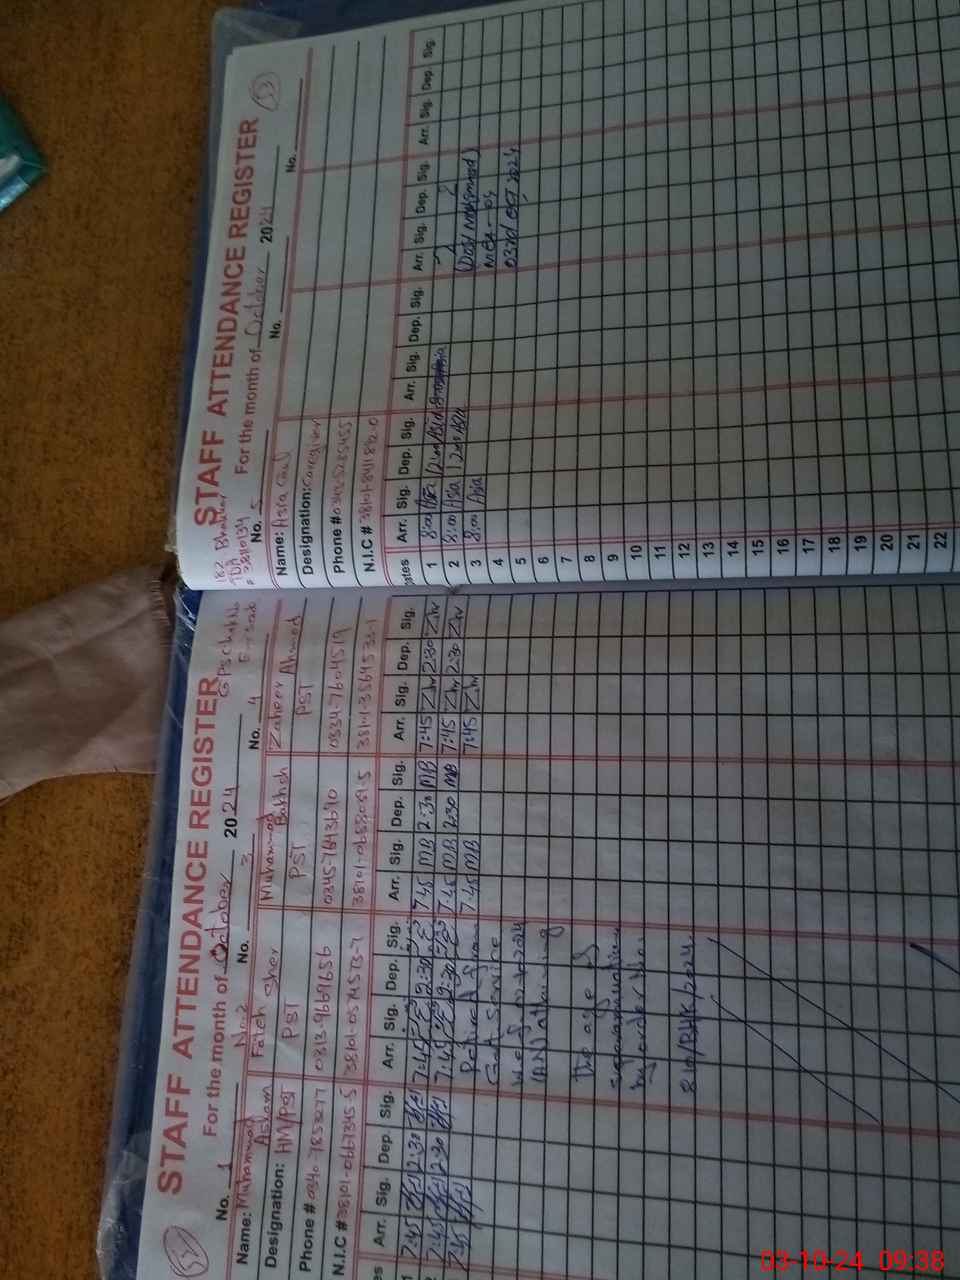 STAFF ATTENDANCE REGISTER
For the month of October 2024
No. 1 No. 2 No. 3 No. 4
Name: Muhammad Aslam
Fateh Sher
Muhammad Bakhsh
Zaheer Ahmed
Designation: HM/PST PST PST PST
Phone # 0340-7853277 0313-9669656 0345-7843690 0334-7604519
N.I.C # 38101-0667345-5 38101-0574573-7 38101-0688051-5 38101-3864538-1
Arr. Sig. Dep. Sig. Arr. Sig. Dep. Sig. Arr. Sig. Dep. Sig. Arr. Sig. Dep. Sig.
1 7:45 2:30 7:45 2:30 7:45 MB 2:30 MB 7:45 Zhr 2:30 Zhr
2 7:45 2:30 7:45 2:30 7:45 MB 2:30 MB 7:45 Zhr 2:30 Zhr
7:45 7:45 MB 7:45 Zhr
Retired from
Govt service
(A.N) attaining
The age of
superannuation
by order No:
STAFF ATTENDANCE REGISTER
53
No. 5 For the month of October 2024
No. No.
Name: Asia
Designation: Caregiver
Phone # 0342-5285455
N.I.C # 38101-8411812-0
Dates Arr. Sig. Dep. Sig. Arr. Sig. Dep. Sig. Arr. Sig. Dep. Sig. Arr. Sig. Dep. Sig.
1 8:00 Asia 12:00 Asia
2 8:00 Asia 12:00 Asia
3 8:00 Asia
4
5
6
7
8
9
10
11
12
13
14
15
16
17
18
19
20
21
22
(Dost Mohammad)
MEA-
03rd Oct 2024
03-10-24 09:38